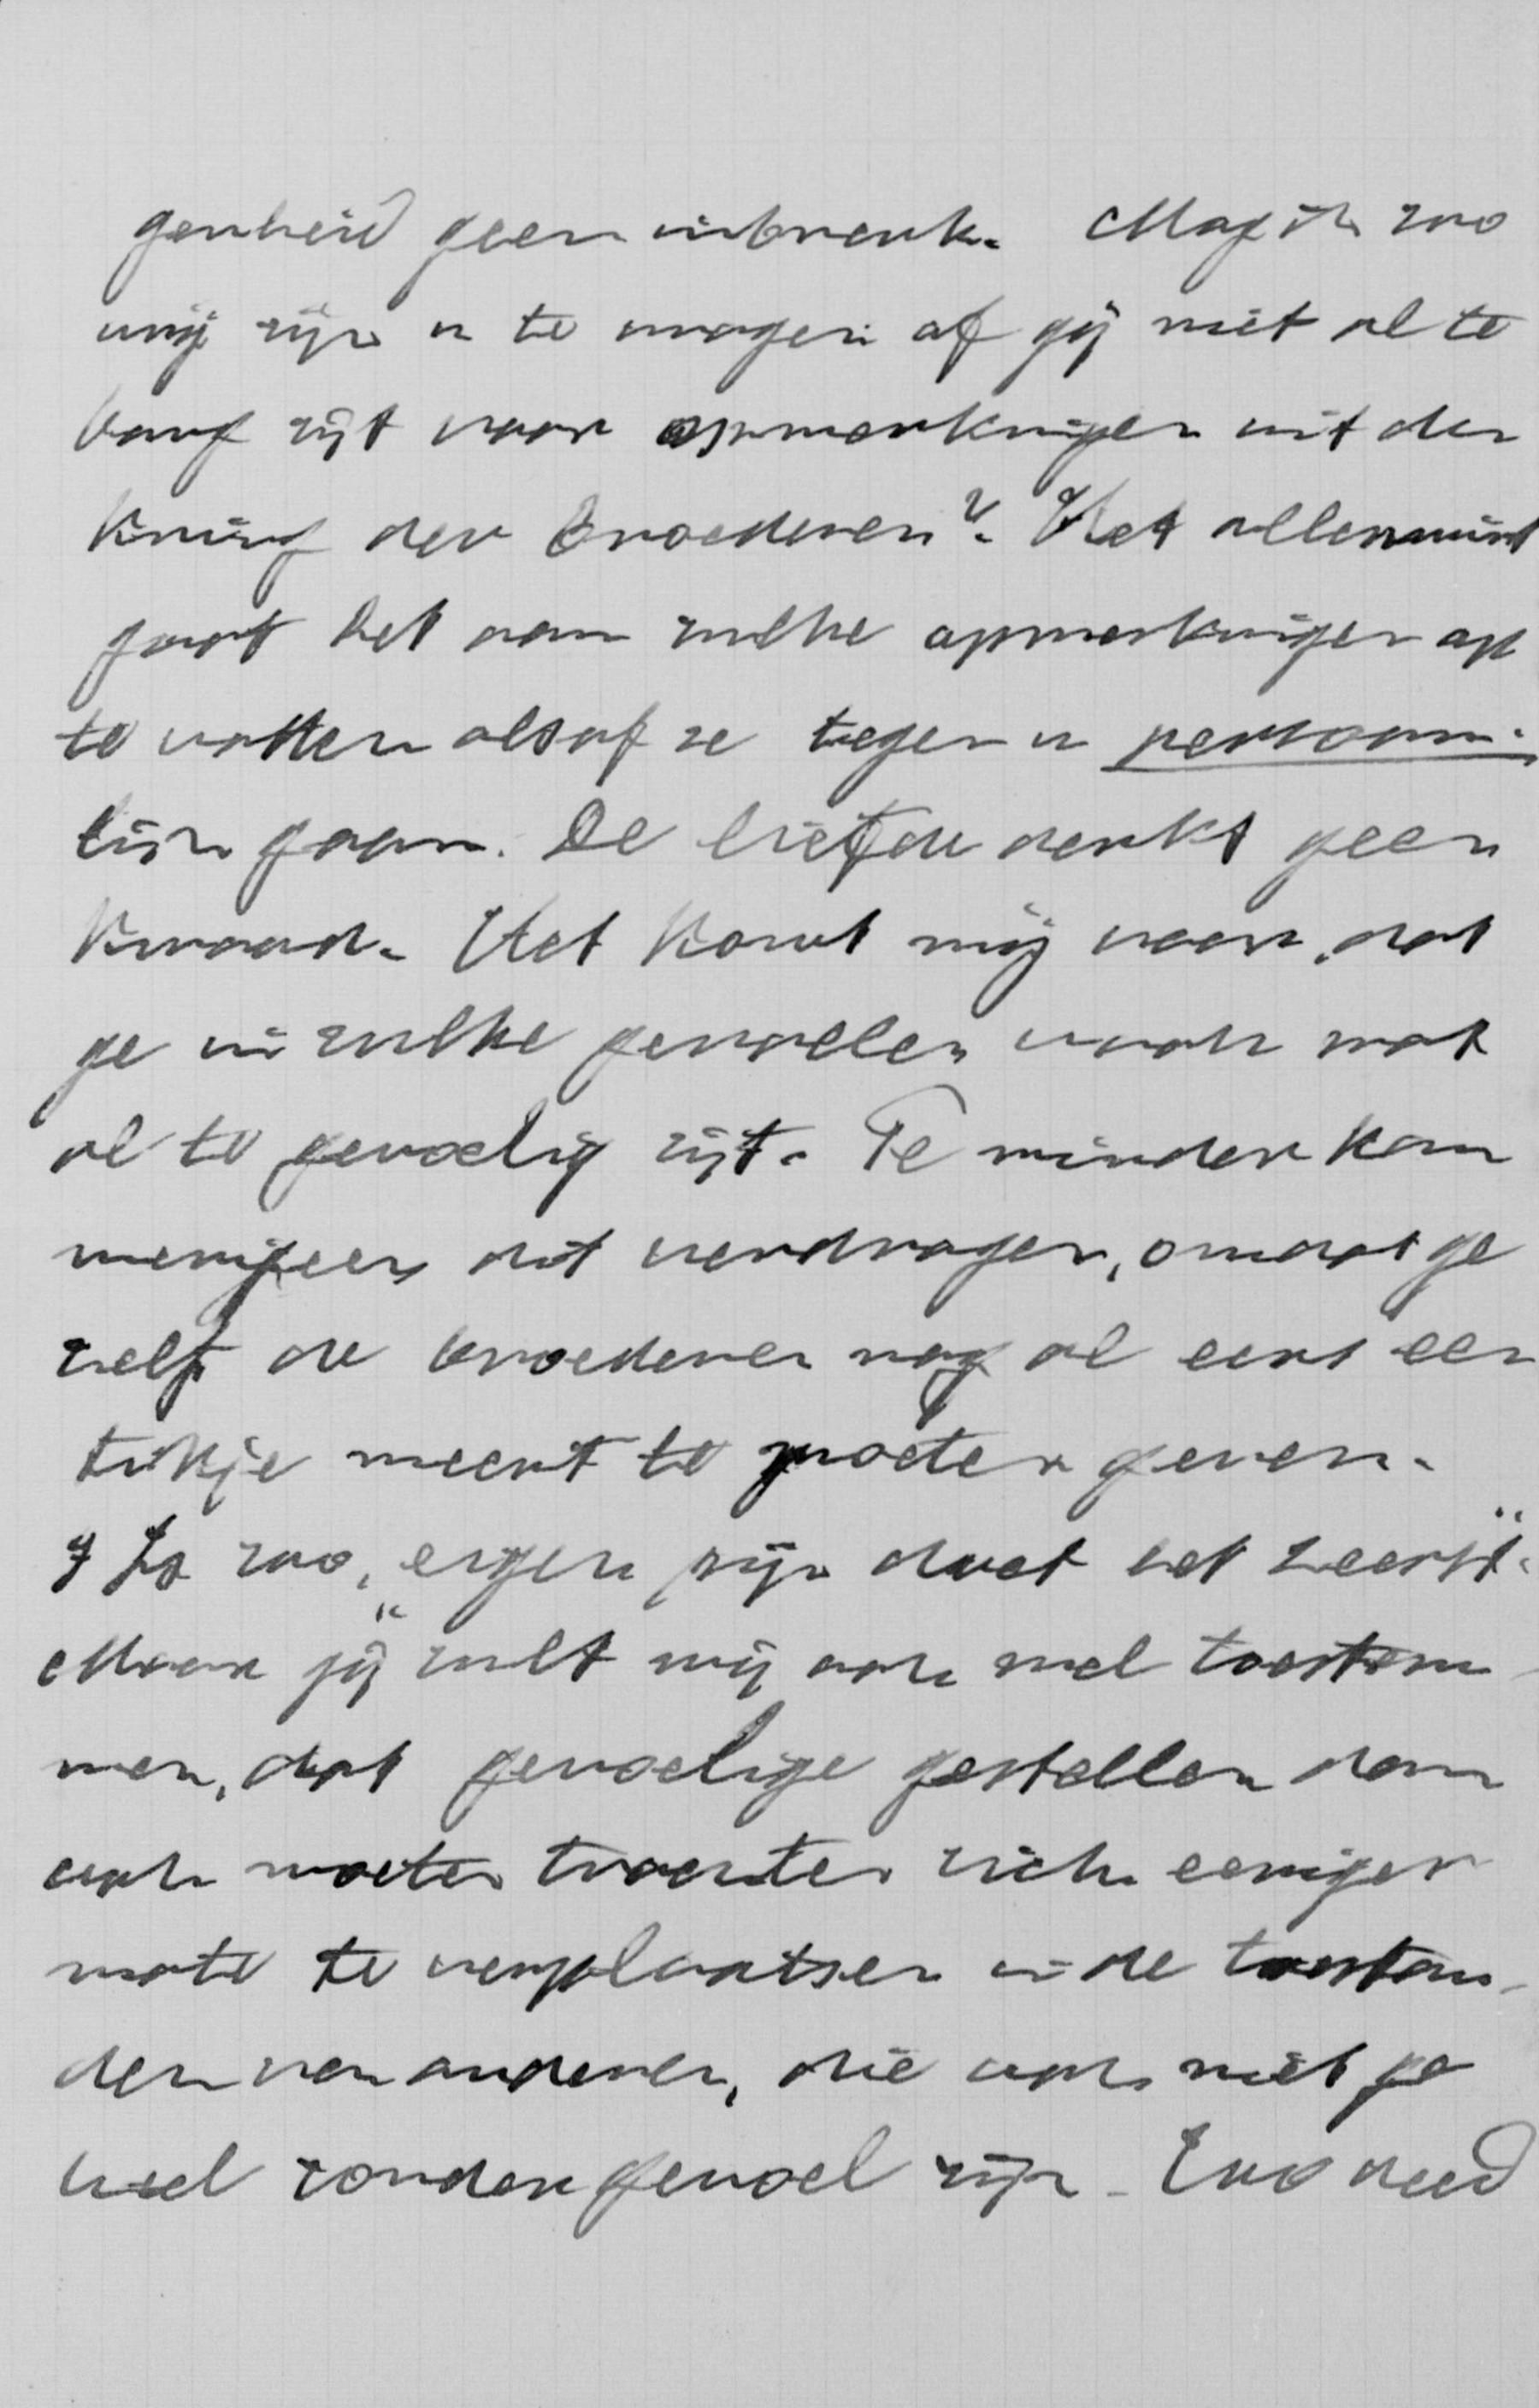 genheid geen inbreuk. Mag ik zoo
vrij zijn u te vragen of gij niet al te
bang zijt voor opmerkingen uit den
kring der broederen? Het allerminst
gaat het aan zulke opmerkingen op
te vatten alsof ze tegen u persoon-
lijk gaan. De liefde denkt geen
kwaad. Het komt mij voor, dat
ge in zulke gevallen vaak wat
al te gevoelig zijt. Te minder kan
menigeen dit verdragen, omdat ge
zelf de broederen nog al eens een
tikje meent te moeten geven.
't Is zoo, „eigen pijn doet het zeerst".
Maar gij zult mij ook wel toestem-
men, dat gevoelige gestellen dan
ook moeten trachten zich eeniger
mate te verplaatsen in de toestan-
den van anderen, die ook niet ge
heel zonder gevoel zijn. Zoo deed